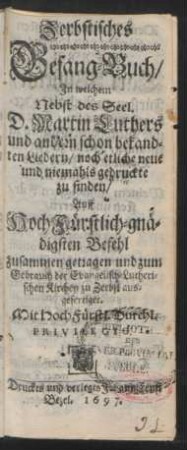 Zerbstisches
Gesang-Buch/
In welchem
Nebst des Seel.
D. Martin Luthers
und andern schon bekand-
ten Liedern/ noch etliche neue
und niemahls gedruckte
zu finden/
Auff
Hoch-Fürstlich-gnä-
digsten Befehl
zusammen getragen und zum
Gebrauch der Evangelisch-Lutheri-
schen Kirchen zu Zerbst aus-
gefertiget.
Mit Hoch Fürstl. Durchl.
Druckts und verlegts
Bezel. 1697.